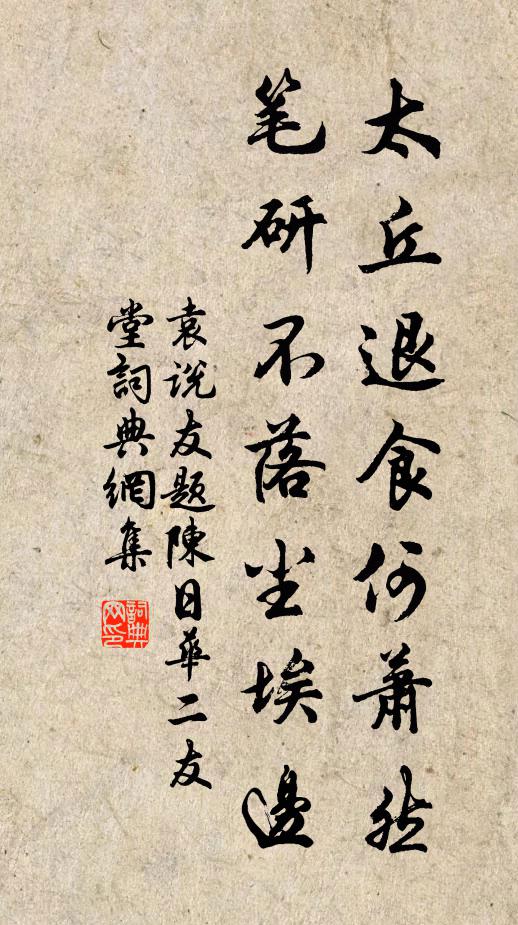 太丘退食何萧然
笔研不落尘埃邊
袁说友题陳日華二友
堂詞典網集
詞典网印